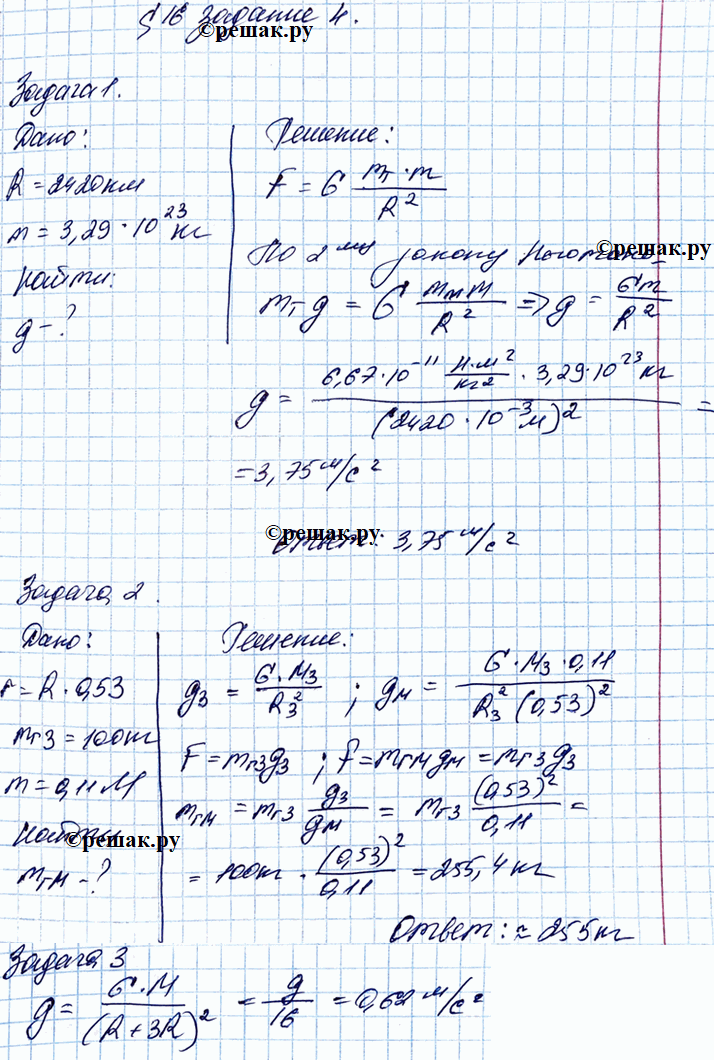 § 16 Задание 4.
©решак.ру
Задача 1.
Дано:
R = 2420 км
m = 3,29 · 10^23 кг
Найти:
g - ?
Решение:
F = G (m_т · m) / R^2
По 2му закону Ньютона
©решак.ру
m_т g = G (m_м m) / R^2 => g = G m / R^2
g = (6,67 · 10^-11 Н·м^2/кг^2 · 3,29 · 10^23 кг) / (2420 · 10^-3 м)^2 =
= 3,75 м/с^2
©решак.ру
Ответ: 3,75 м/с^2
Задача 2.
Дано:
r = R · 0,53
m_гз = 100 кг
m = 0,11 M
Найти
©решак.ру
m_гм - ?
Решение:
g_з = G · M_з / R_з^2 ; g_м = G · M_з · 0,11 / R_з^2 (0,53)^2
F = m_гз g_з ; F = m_гм g_м = m_гз g_з
m_гм = m_гз g_з / g_м = m_гз (0,53)^2 / 0,11 =
= 100 кг · (0,53)^2 / 0,11 = 255,4 кг
Ответ: ≈ 255 кг
Задача 3
g = G · M / (R + 3R)^2 = g / 16 = 0,62 м/с^2